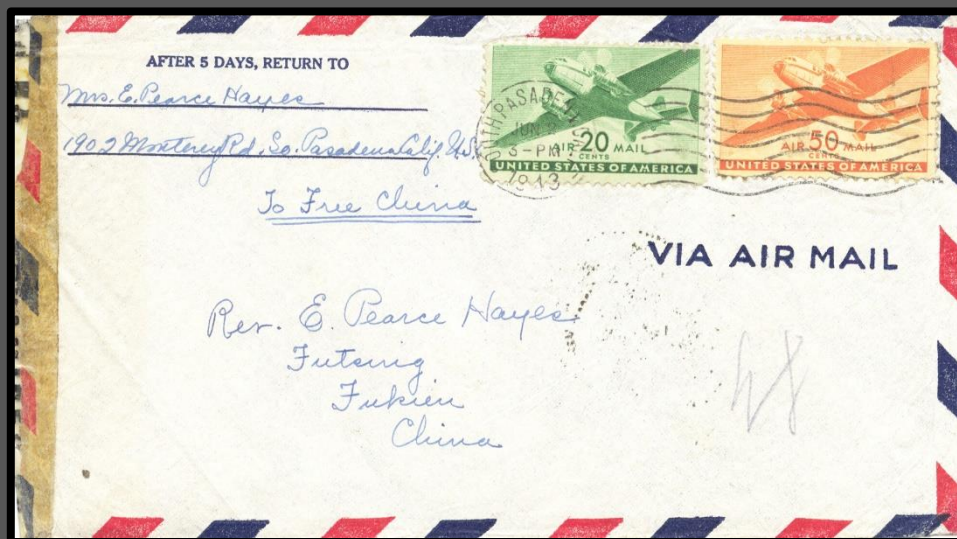 AFTER 5 DAYS, RETURN TO
Mrs. E. Pearce Hayes
1902 Monterey Rd. So. Pasadena Calif. U.S.
To Free China
PASADENA
JUN
3-PM
1943
AIR 20 MAIL
CENTS
UNITED STATES OF AMERICA
AIR 50 MAIL
CENTS
UNITED STATES OF AMERICA
VIA AIR MAIL
Rev. E. Pearce Hayes
Futsing
Fukien
China